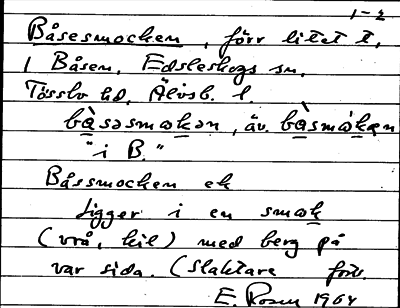 1-2
Båsesmocken, förr litet t.
i Båsen, Edsleskogs sn,
Tössbo hd, Älvsb. l.
bàsəsmωkən, äv. bàsmωkæn
"i B."
Båssmocken ek
Ligger i en smωk
(vrå, kil) med berg på
var sida. (Slaktare förr.
E. Rosen 1964